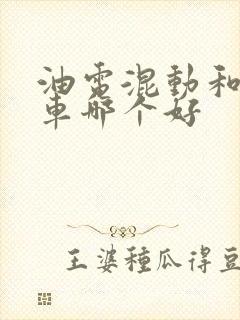 油電混動和
車哪个好
王婆種瓜得豆